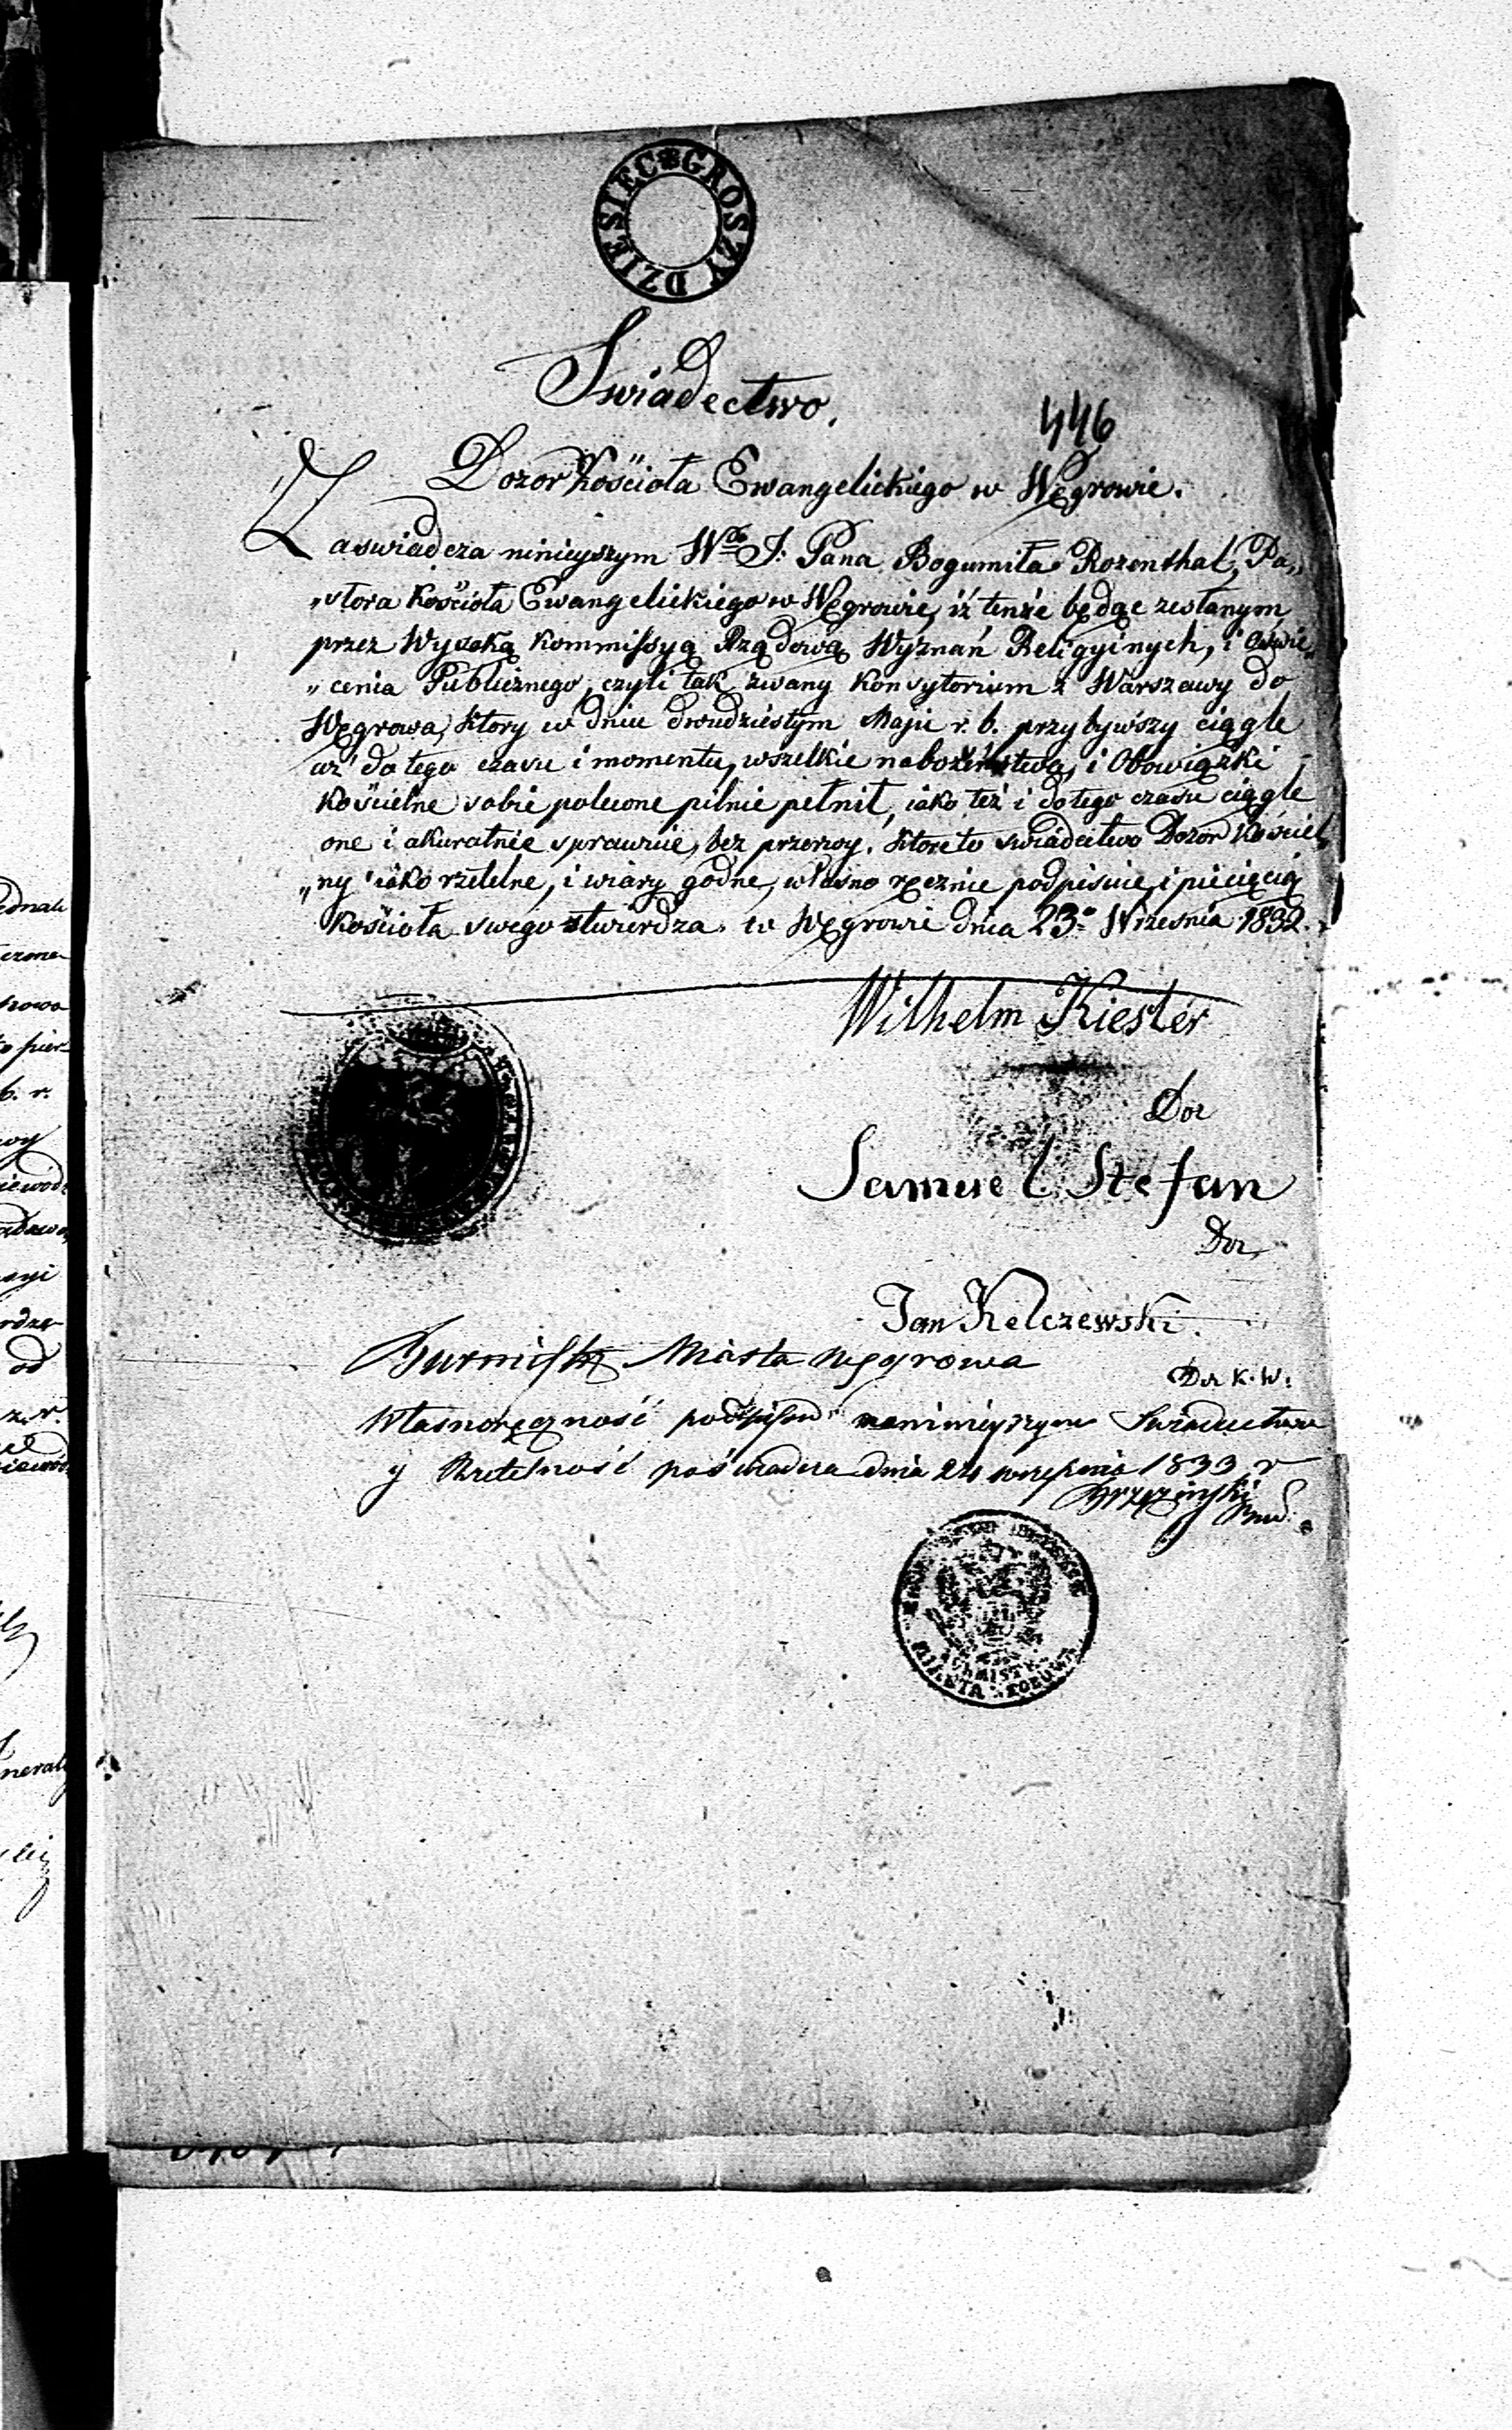 DZIESIEC GROSZY
Swiadectwo.
446
Dozor Kościoła Ewangelickiego w Węgrowie.
Zaswiadcza ninieyszym W<sup>do</sup> J: Pana Bogumiła Rozenthal, Pa„
„stora Kościoła Ewangelickiego w Węgrowie, iż tenże będąc zesłanym
przez Wysoką Kommissyą Rządową Wyznań Religyinych, i Oswie„
„cenia Publicznego, czyli tak zwany Konsytorium z Warszawy do
Węgrowa, ktory w dniu dwudziestym Maju r. b. przybywszy ciągle
aż do tego czasu i momentu, wszelkie nabożeństwa, i Obowiązki
Kościelne sobie polecone pilnie pełnił, iako też i do tego czasu ciągle
one i akuratnie sprawuie, bez przerwy. Ktore to swiadectwo Dozor Kościel„
„ny iako rzetelne, i wiary godne, własno ręcznie podpisuie, i pieczęcią
Kościoła swego stwierdza. w Węgrowie dnia 23<sup>o</sup> Wrzesnia 1832.
Wilhelm Kiester
Doz
Samuel Stefan
Doz
Jan Kelczewski.
Doz K. W.
Burmistrz Miasta Węgrowa
Własnoręczność podpisow na ninieyszym Swiadectwie
y Rzetelność poświadcza dnia 24 września 1833 r
BURMISTRZ
MIASTA
ednak
czone
rowa
b. r.
od
z. r.